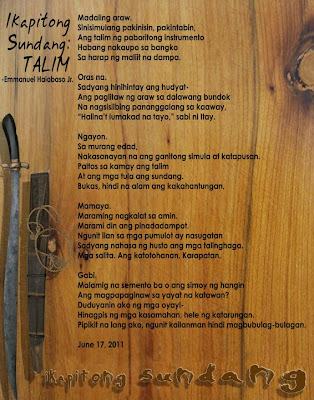 Ikapitong
Sundang:
TALIM
-Emmanuel Halabaso Jr.
Madaling araw.
Sinisimulang pakinisin, pakintabin,
Ang talim ng paboritong instrumento
Habang nakaupo sa bangko
Sa harap ng maliit na dampa.
Oras na.
Sadyang hinihintay ang hudyat-
Ang paglitaw ng araw sa dalawang bundok
Na nagsisilbing pananggalang sa kaaway,
"Halina't lumakad na tayo," sabi ni Itay.
Ngayon.
Sa murang edad,
Nakasanayan na ang ganitong simula at katapusan.
Paltos sa kamay ang talim
At ang mga tula ang sundang.
Bukas, hindi na alam ang kakahantungan.
Mamaya.
Maraming nagkalat sa amin.
Marami din ang pinadadampot.
Ngunit ilan sa mga pumulot ay nasugatan
Sadyang nahasa ng husto ang mga talinghaga.
Mga salita. Ang katotohanan. Karapatan.
Gabi.
Malamig na semento ba o ang simoy ng hangin
Ang magpapaginaw sa yayat na katawan?
Duduyanin ako ng mga oyayi-
Hinagpis ng mga kasamahan, hele ng katarungan.
Pipikit na lang ako, ngunit kailanman hindi magbubulag-bulagan.
June 17, 2011
ikapitong sundang